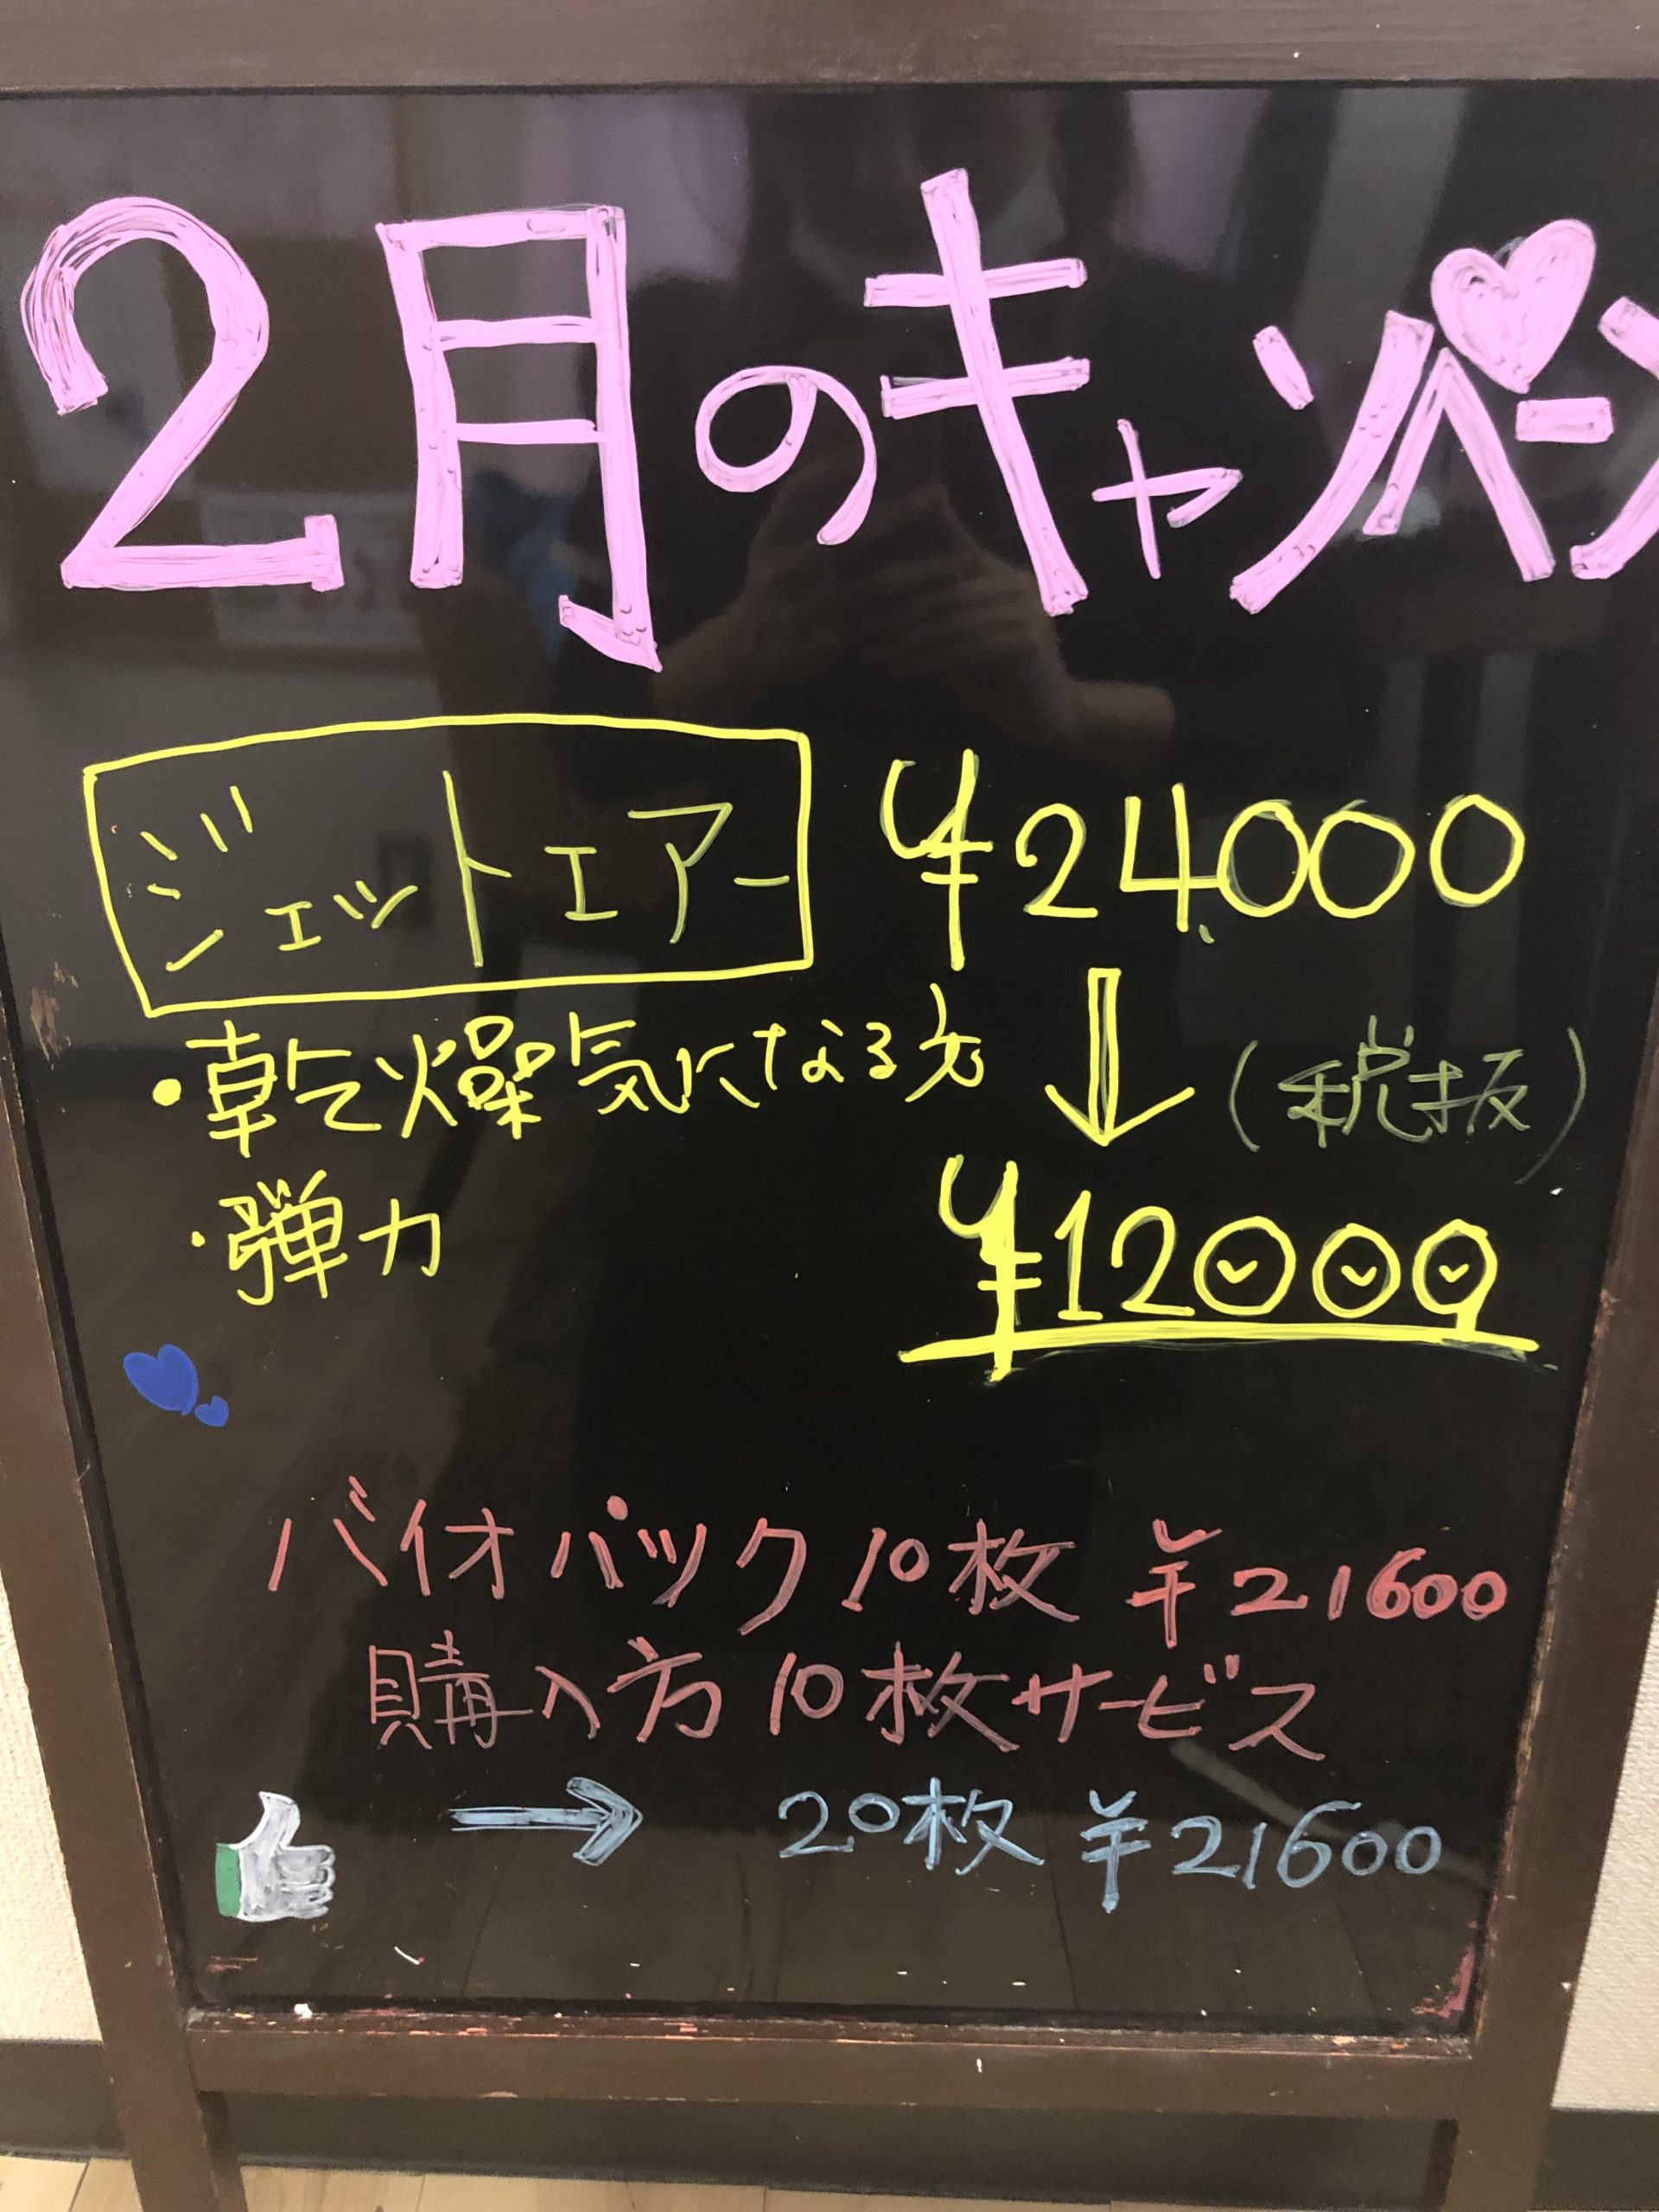 2月のキャンペーン
ジェットエアー ¥24,000
・乾燥気になる方
(税抜)
・弾力
¥12000
バイオパック10枚 ¥21600
購入方10枚サービス
→ 20枚 ¥21600